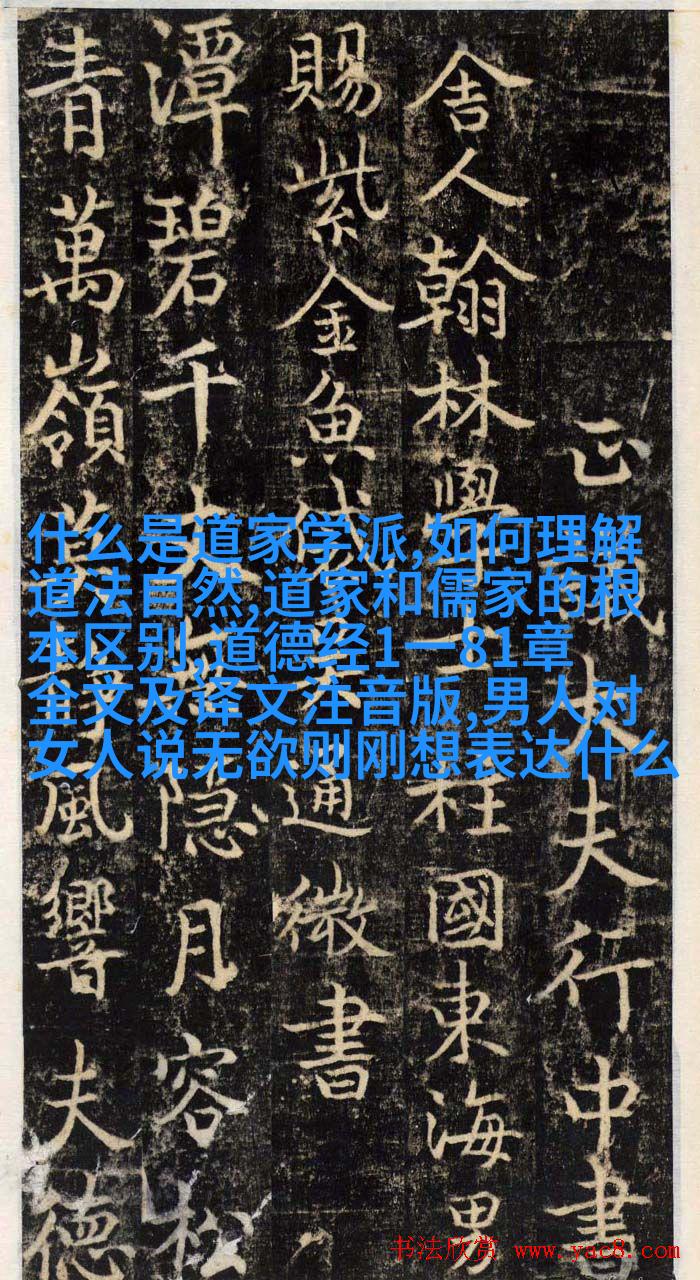 正大夫行中書
舍人翰林學士柱國東海男
賜紫金魚袋通微書
潭碧千丈隐月容松
青萬嶺風響夫德
什么是道家学派,如何理解
道法自然,道家和儒家的根
本区别,道德经1一81章
全文及译文注音版,男人对
女人说无欲则刚想表达什么
书法欣赏 www.yac8.com